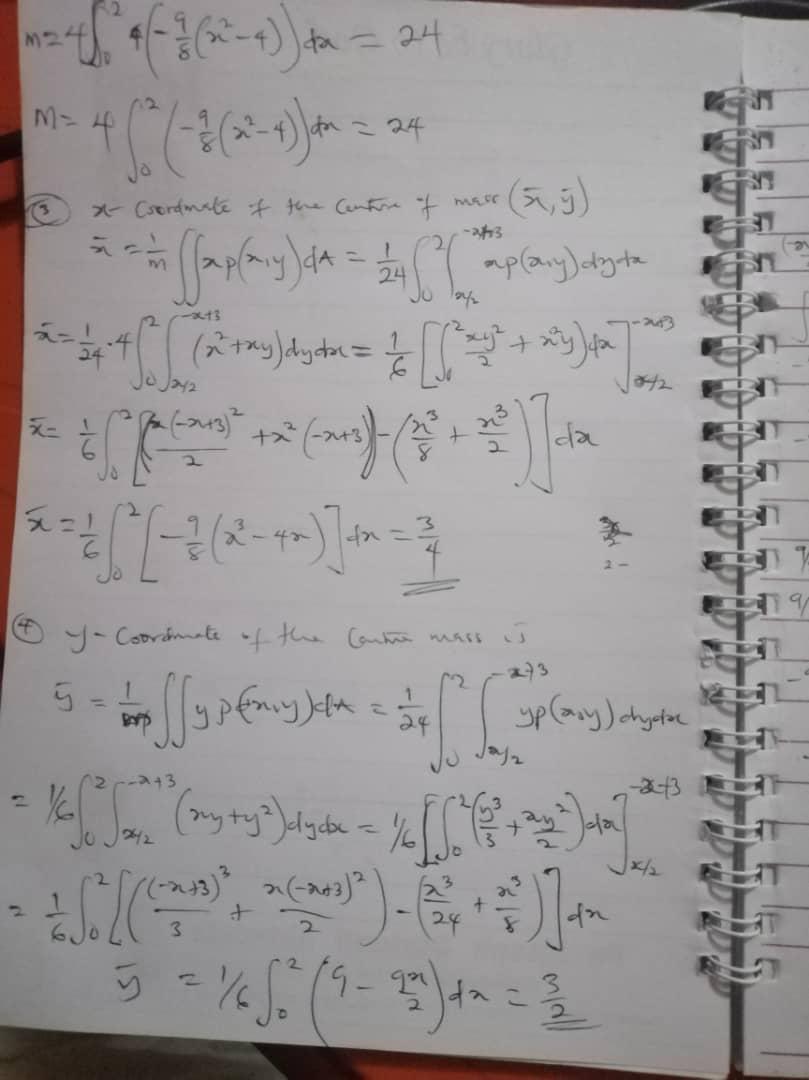 m=4∫₀² 4(-9/8(x²-4))dx = 24
M= 4∫₀²(-9/8(x²-4))dx = 24
③ x-Coordinate of the Centre of mass (x̄,ȳ)
x̄ = 1/m ∬xρ(x,y)dA = 1/24 ∫₀² ∫_{x/2}^{-x+3} xρ(x,y)dydx
x̄ = 1/24 · 4∫₀² ∫_{x/2}^{-x+3} (x²+xy)dydx = 1/6 [∫₀² xy²/2 + x²y)dx]_{x/2}^{-x+3}
x̄ = 1/6 ∫₀² [(x(-x+3)²/2 + x²(-x+3)) - (x³/8 + x³/2)]dx
x̄ = 1/6 ∫₀² [-9/8(x³-4x)]dx = 3/4
2 -
④ y-Coordinate of the Centre mass is
ȳ = 1/m ∬yρ(x,y)dA = 1/24 ∫₀² ∫_{x/2}^{-x+3} yρ(x,y)dydx
= 1/6 ∫₀² ∫_{x/2}^{-x+3} (xy+y²)dydx = 1/6 [∫₀² (y³/3 + xy²/2)dx]_{x/2}^{-x+3}
= 1/6 ∫₀² [((-x+3)³/3 + x(-x+3)²/2) - (x³/24 + x³/8)]dx
ȳ = 1/6 ∫₀² (9 - 9x/2)dx = 3/2
9/